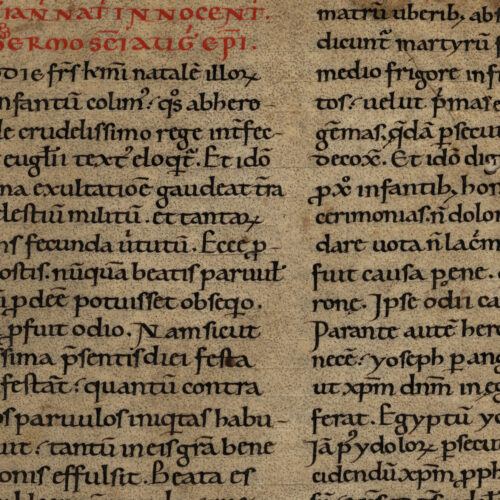 IAN̄ NAT̄ INNOCENT.
SERMO SC̄I AUḠ EP̄I.
ODIE fr̄s km̄i natalē illoꝝ
infantū colim᷒: q̄s abhero-
de crudelissimo rege int̄fec-
euḡlii text᷒ eloqt᷒. Et idō
na exultatioē gaudeat t̄ra
lestiū militū. et tantaꝝ
ns fecunda útutū. Ecce ꝓ-
ostis. nūquā beatis paruul
ꝓdeē potuisset obseqio.
ꝓfuit odio. Nam sicut
sima p̄sentis diei festa
festat᷒: quantū contra
os paruulos iniqtas habu-
uit: tantū in eis gr̄a bene
onis effulsit. Beata es
matrū uberib᷒ ab
dicunt᷒ martyrū f
medio frigore inf
tos: uelut p̄mas e
gēmas. q̄dā persecut
decoxᷓ. Et idō dig
ꝓ xo infantib᷒ hon
cerimonias. n̄ dolor
dare uota n̄ lac̓m
fuit causa pene. c
rone. Ipse odii ca
Parante autē her
necē: yoseph per ang
ut xp̄m dn̄m in eg
ferat. Egyptū yo
Iā p᷒ ydoloꝝ persecut
cidendū xp̄m. ꝓph